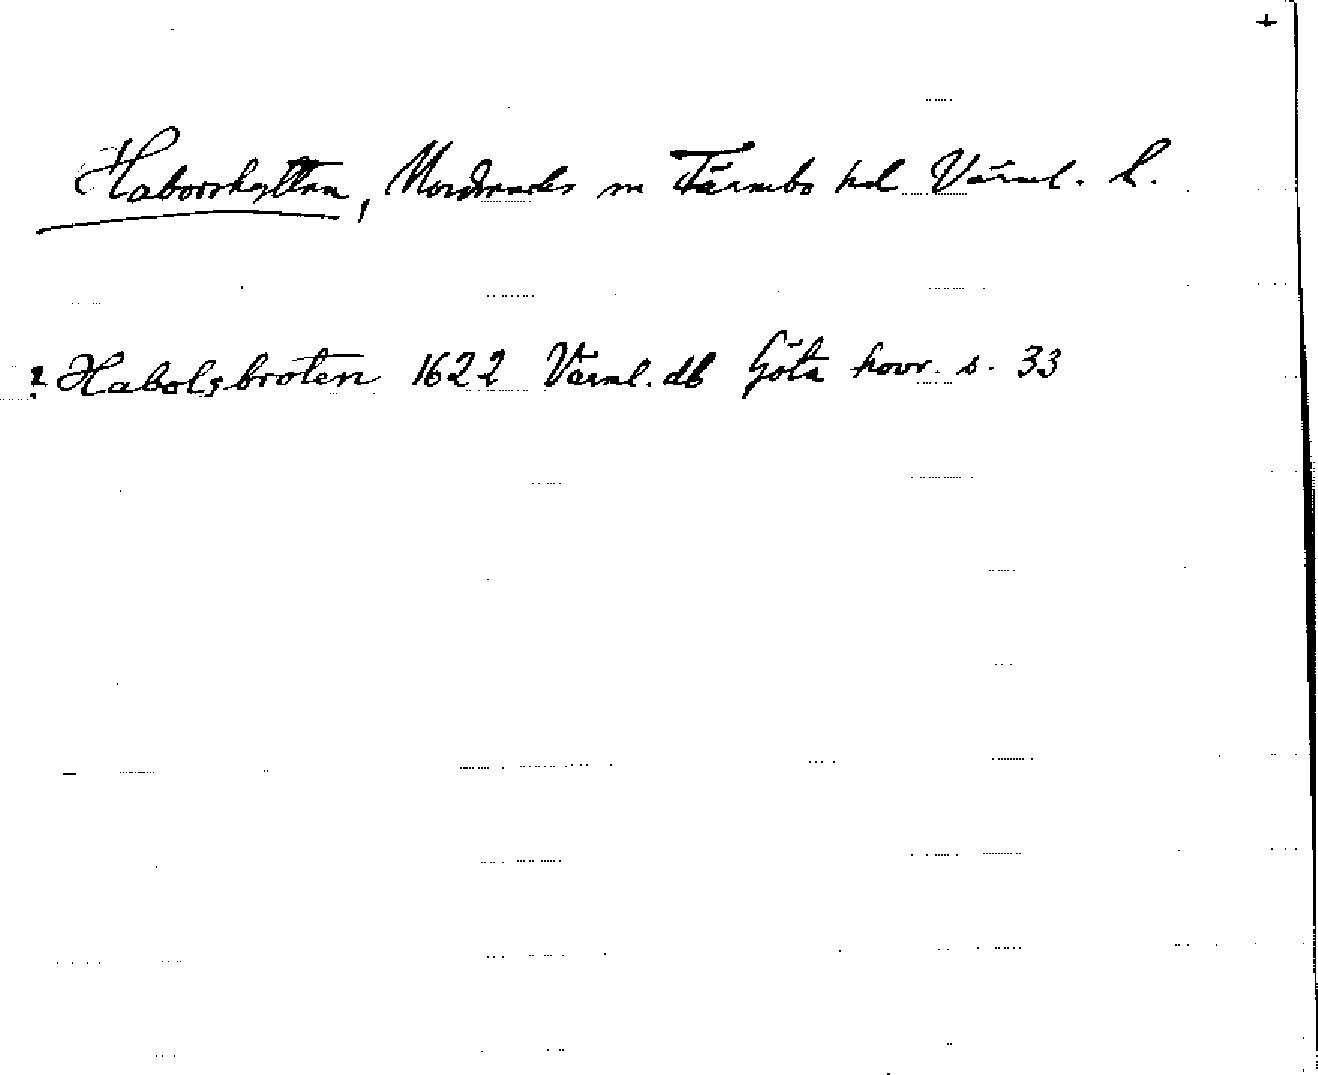 +
Haborshyttan, Nordmarks sn Färnebo hd Värml. l.
? Habolsbroten 1622 Värml. db Göta hovr. s. 33